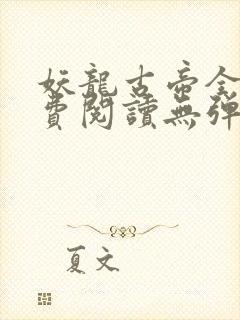 妖龍古帝全
費閱讀無彈
夏文